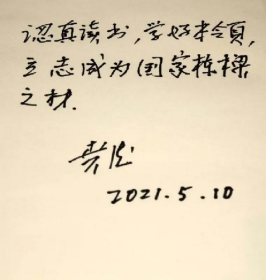 認真读书，学好本領，
立志成为国家栋樑
之材.
2021.5.10